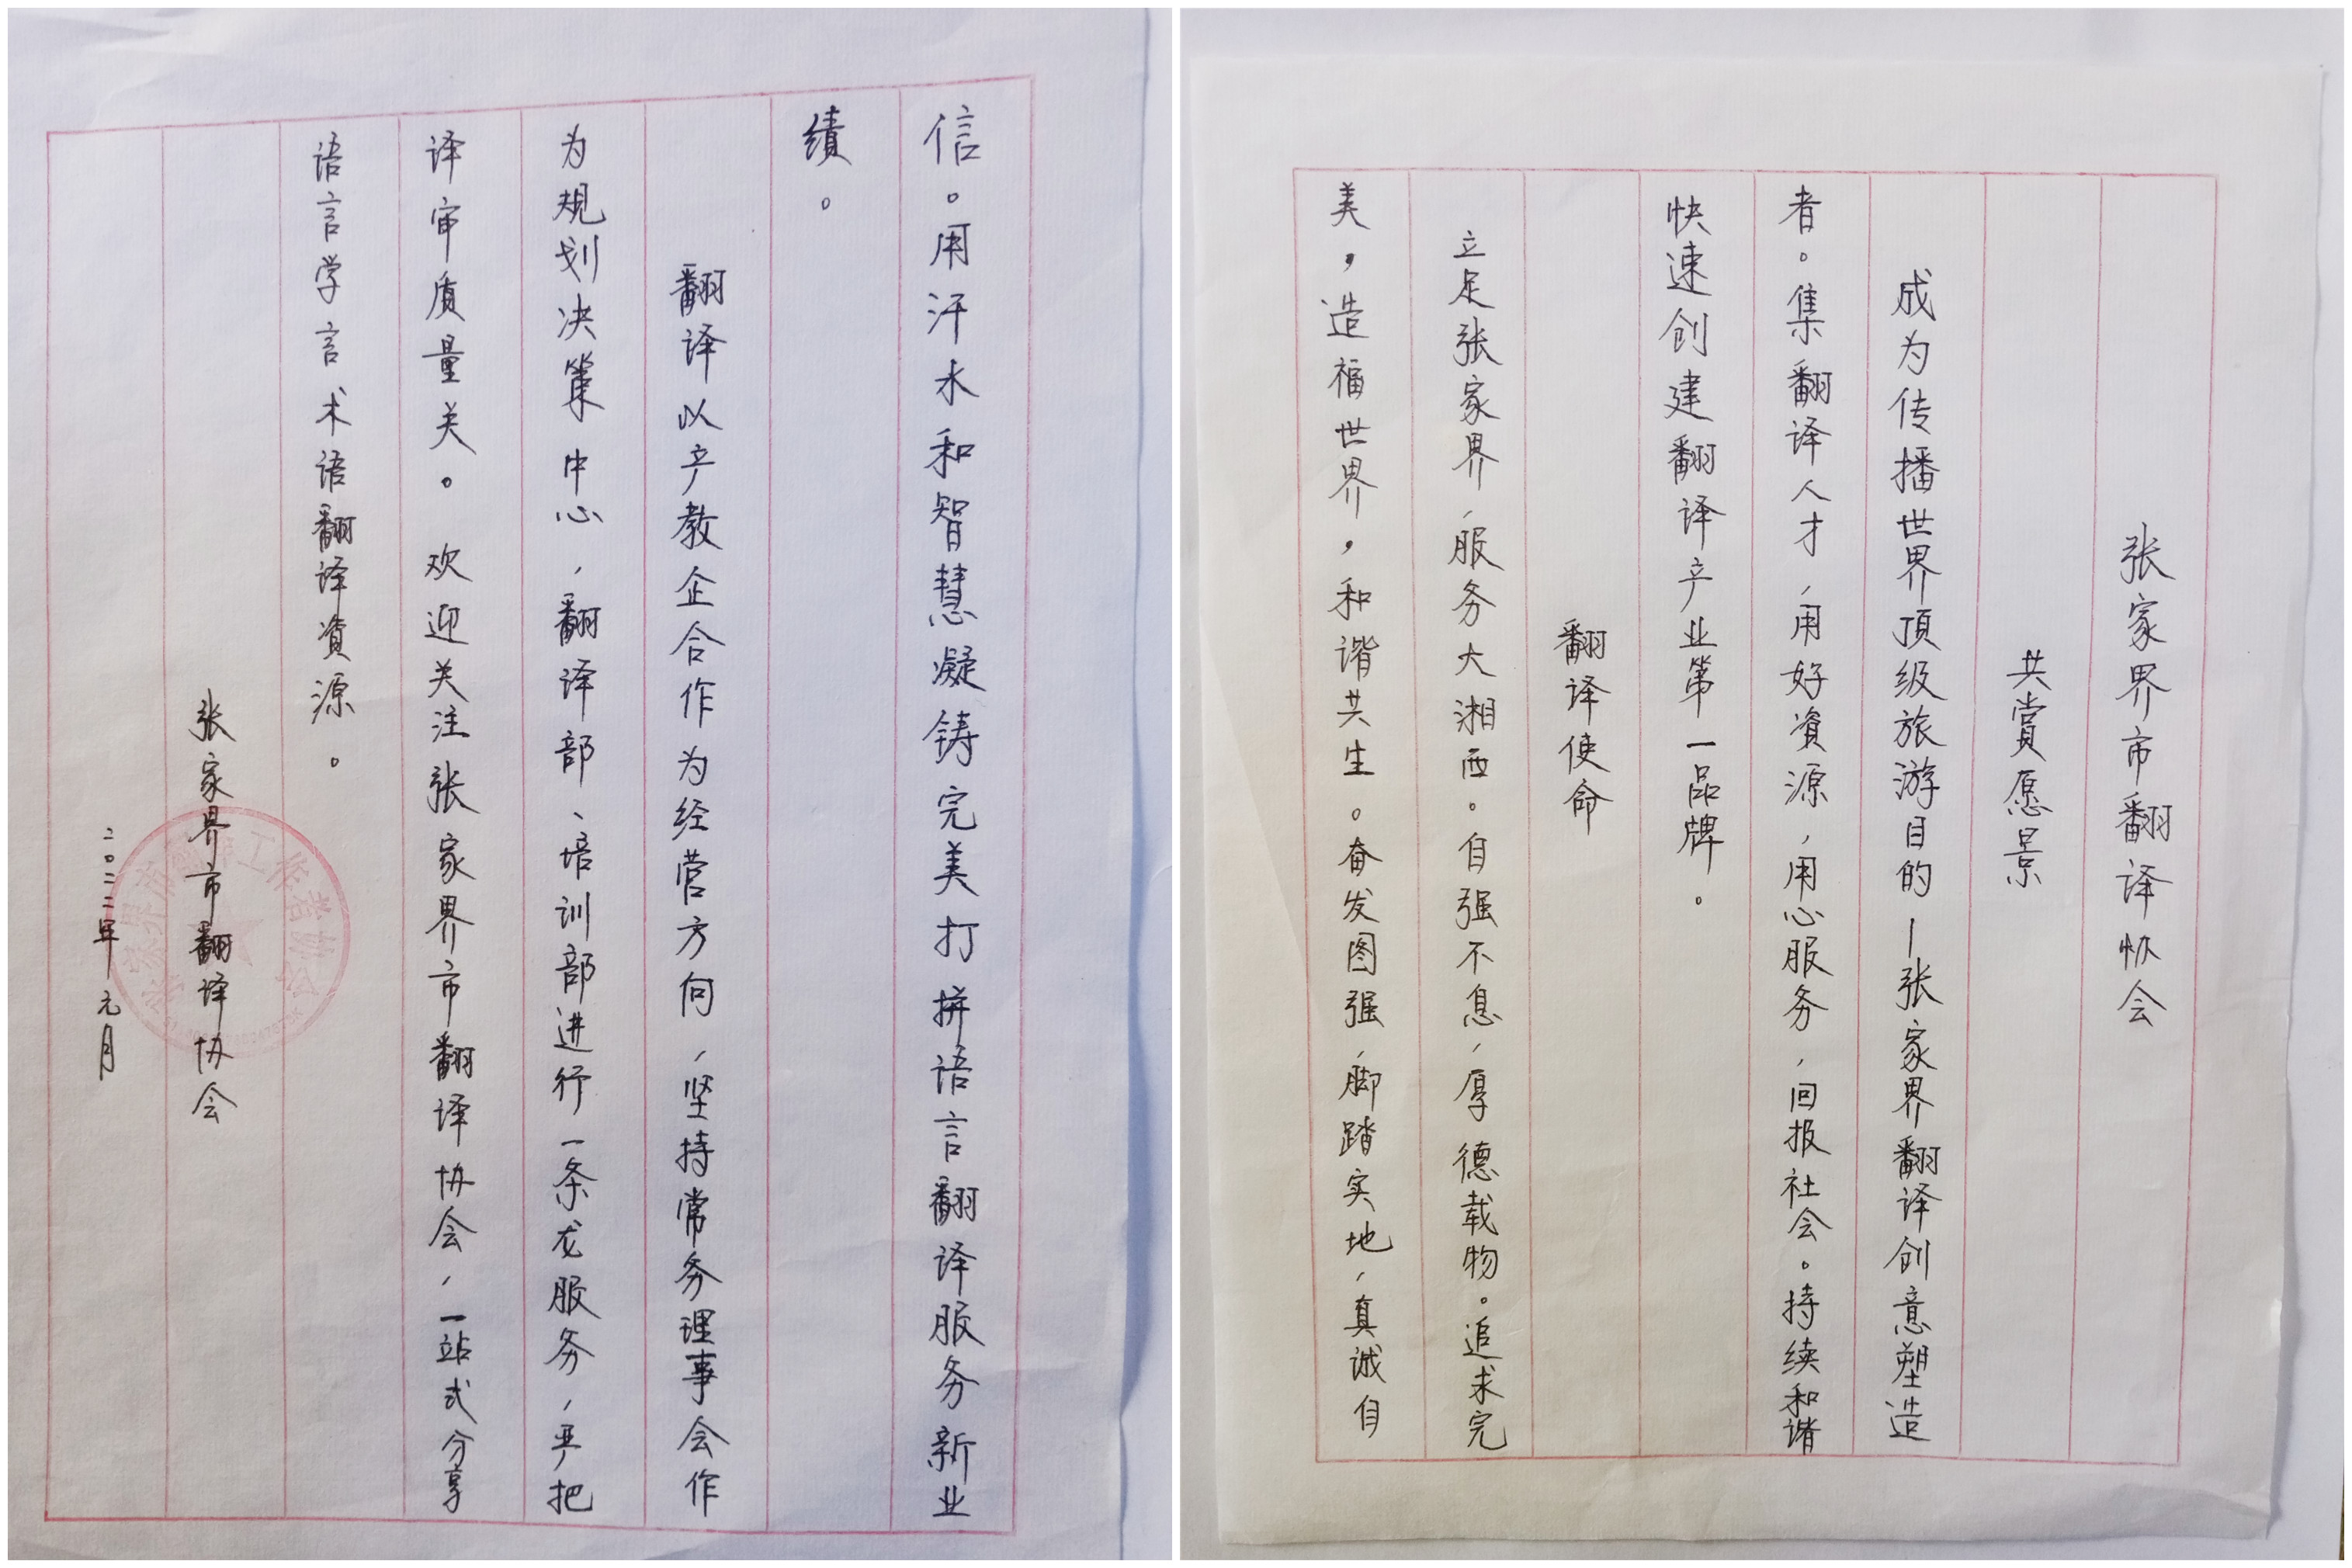 张家界市翻译协会
共赏愿景
成为传播世界顶级旅游目的—张家界翻译创意塑造
者。集翻译人才，用好資源，用心服务，回报社会。持续和谐
快速创建翻译产业第一品牌。
翻译使命
立足张家界，服务大湘西。自强不息，厚德载物。追求完
美，造福世界，和谐共生。奋发图强，脚踏实地，真诚自
信。用汗水和智慧凝铸完美打拼语言翻译服务新业
绩。
翻译以产教企合作为经营方向，坚持常务理事会作
为规划决策中心，翻译部、培训部进行一条龙服务，严把
译审质量关。欢迎关注张家界市翻译协会，一站式分享
语言学言术语翻译資源。
张家界市翻译协会
二〇二二年元月
张家界市翻译工作者协会